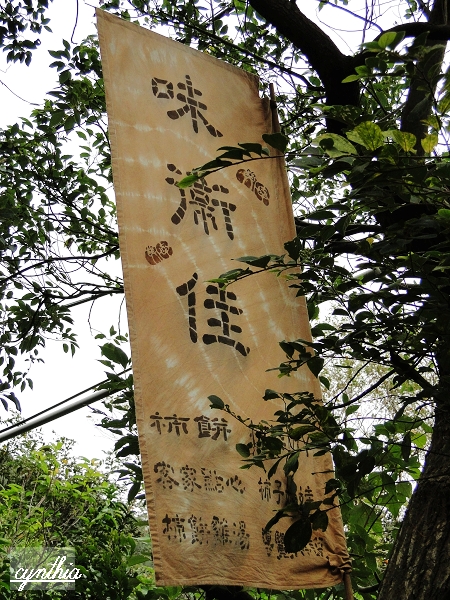 味衛佳
柿餅
客家點心
柿子
柿餅雞湯
cynthia